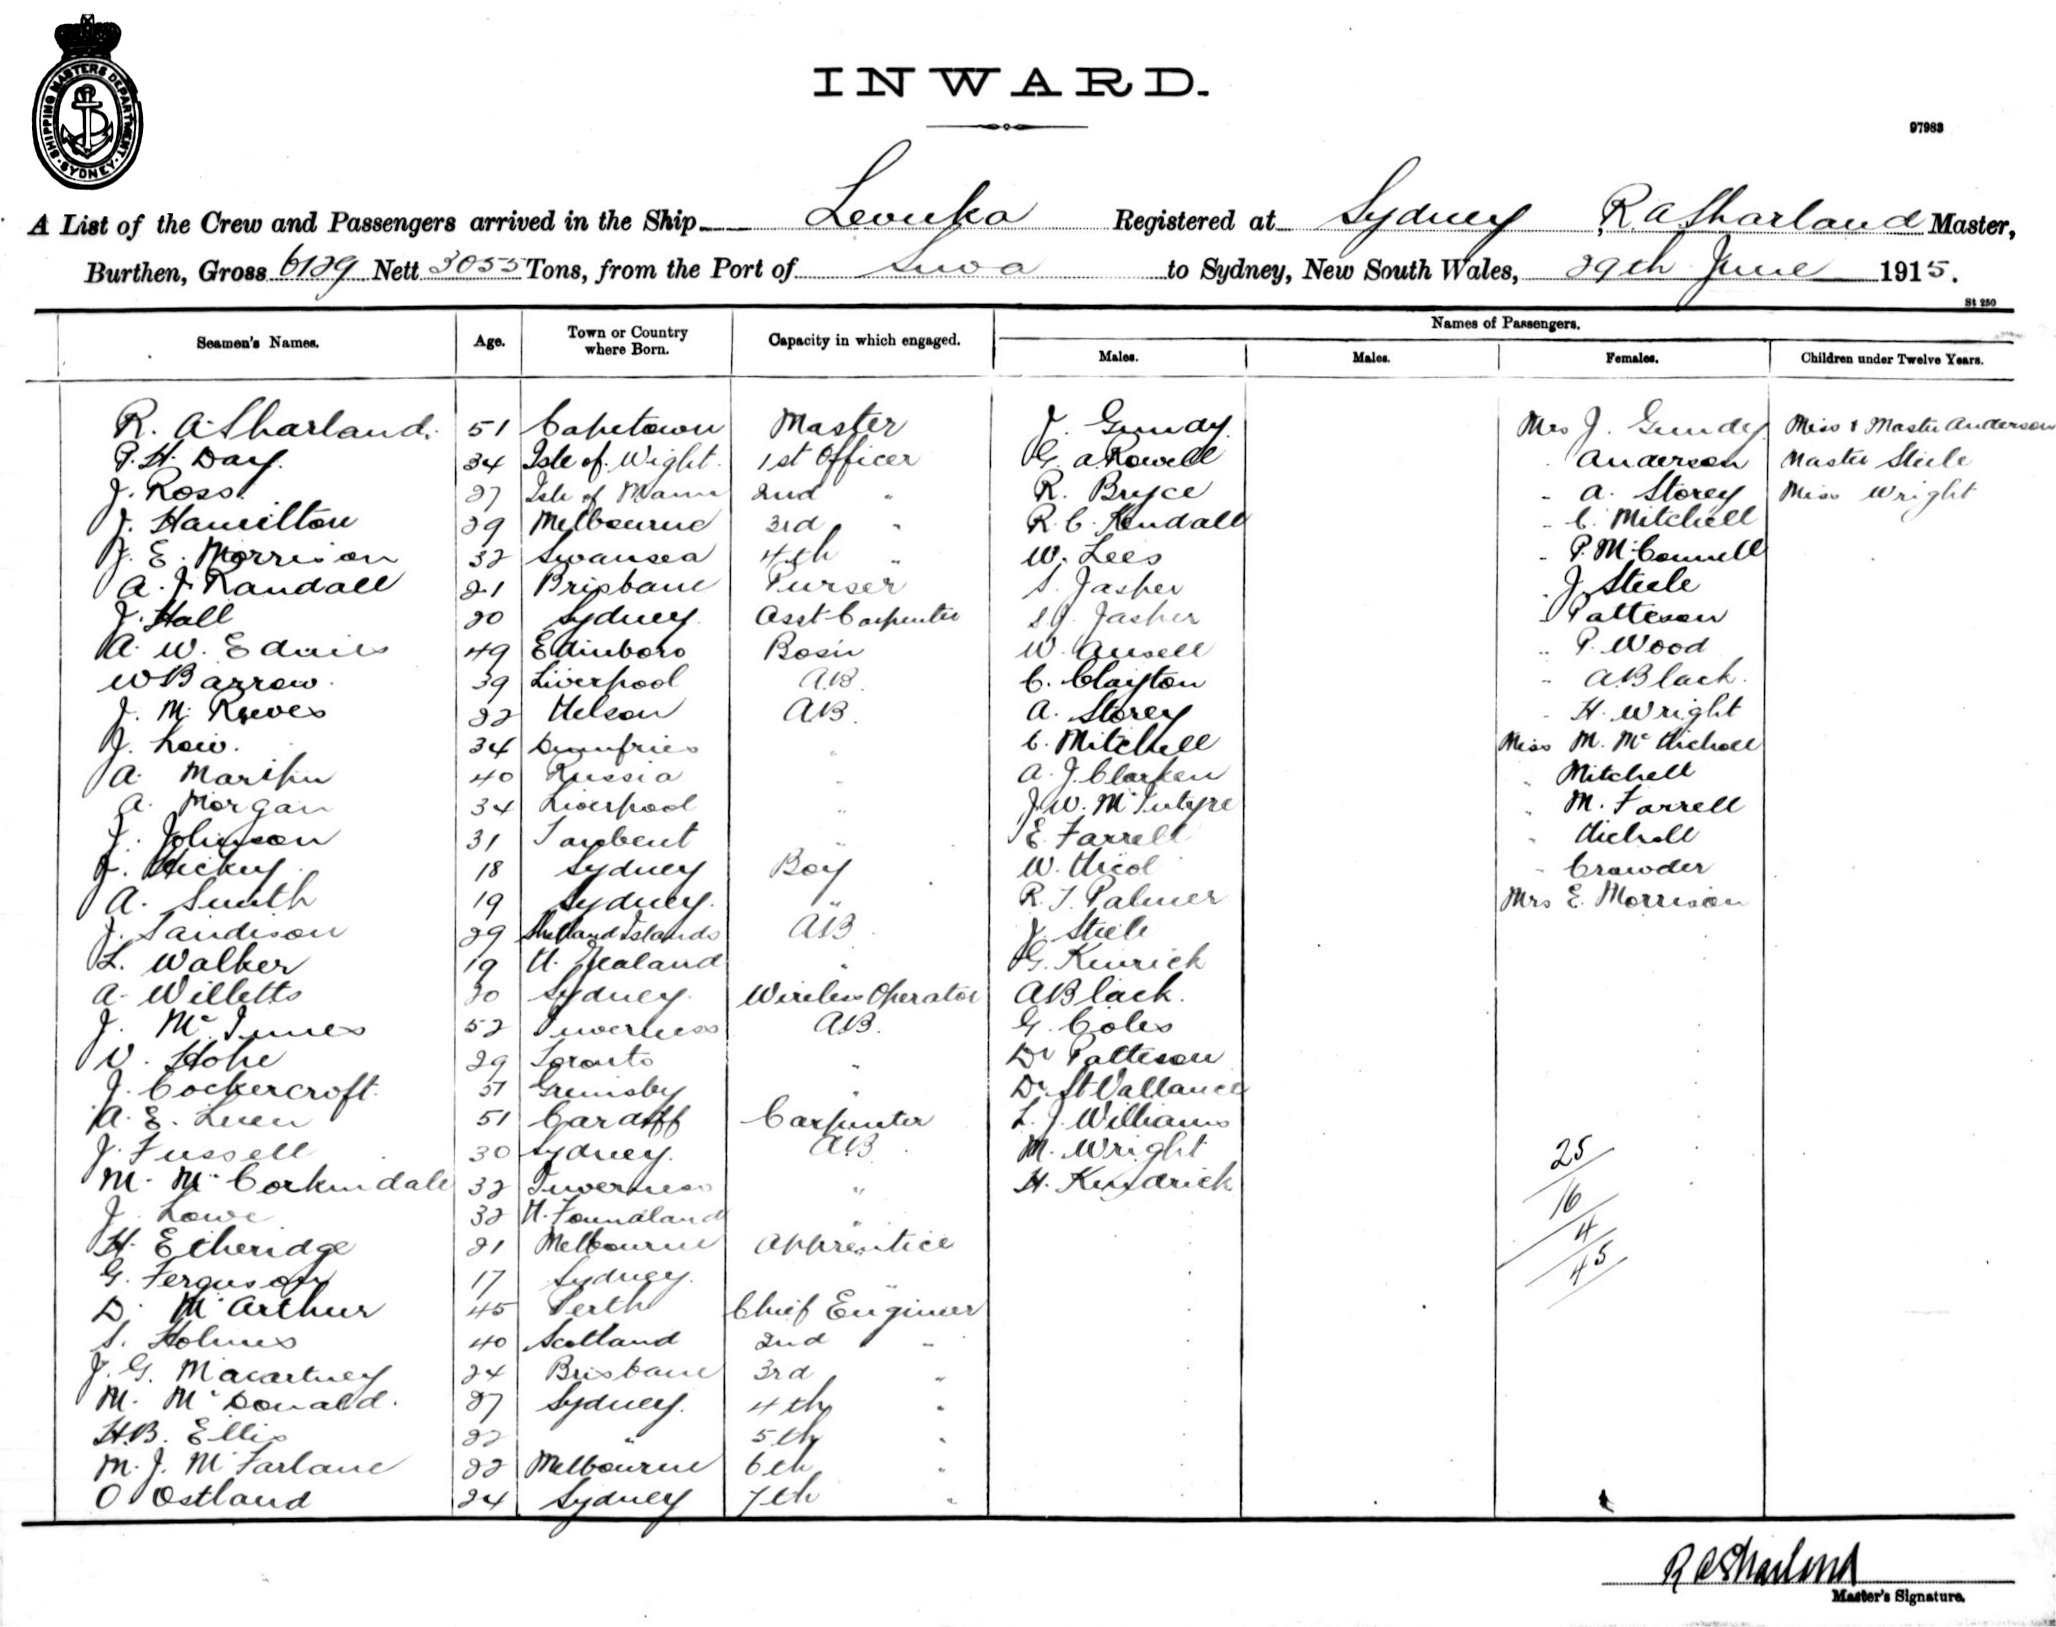 SHIPPING MASTERS DEPARTMENT. SYDNEY
INWARD.
97983
A List of the Crew and Passengers arrived in the Ship Levuka Registered at Sydney, R. A Sharland Master,
Burthen, Gross 6129 Nett 3055 Tons, from the Port of Suva to Sydney, New South Wales, 29th June 1915.
St 250
Names of Passengers.
Seamen's Names. Age. Town or Country where Born. Capacity in which engaged. Males. Males. Females. Children under Twelve Years.
R. A. Sharland. 51 Capetown Master J. Gundy. Mrs J. Gundy Miss & Master Anderson
P. H. Day. 34 Isle of Wight. 1st Officer G. A. Rowell " Anderson Master Steele
J. Ross. 27 Isle of Mann 2nd " R. Bryce " A. Storey Miss Wright
J. Hamilton 29 Melbourne 3rd " R. C. Kendall " C. Mitchell
J. E. Morrison 32 Swansea 4th " W. Lees " P. McConnell
A. J. Randall 21 Brisbane Purser S. Jasper " J. Steele
J. Hall 20 Sydney. Asst Carpenter S. J. Jasper " Patteson
A. W. 49 Edinboro Bosin W. Ansell " P. Wood
W Barrow. 39 Liverpool AB. C. Clayton " A Black.
J. M. Reeves 22 Nelson AB. A. Storey " H. Wright
J. Law. 34 Dumfries " C. Mitchell Miss M. McNicholl
A. 40 Russia " A. J. " Mitchell
A. Morgan 34 Liverpool " J. W. McIntyre " M. Farrell
J. Johnson 31 " E. Farrell " Nicholl
J. Hickey. 18 Sydney Boy W. Nicol " Crowder
A. Smith 19 Sydney. " R. T. Palmer Mrs E. Morrison
J. Sandison 29 Shetland Islands AB. J. Steele
L. Walker 19 N. Zealand " G. Kinrick
A. Willetts 20 Sydney. Wireless Operator A Black.
J. McInnes 52 Inverness AB. G. Coles
V. Hope 29 Toronto " Dr Patteson
J. Cockercroft. 51 Grimsby " Dr St Vallance
A. E. Luen 51 Cardiff Carpenter L. J. Williams
J. Fussell 30 Sydney. AB. M. Wright 25
M. McCorkindale 32 Inverness " H. Kendrick 16
J. Lowe 32 N. Foundland " 4
H. Etheridge 21 Melbourne Apprentice 45
G. Ferguson 17 Sydney. "
D. McArthur 45 Perth Chief Engineer
S. Holmes 40 Scotland 2nd "
J. G. Macartney 24 Brisbane 3rd "
M. McDonald. 27 Sydney. 4th "
H.B. Ellis 22 " 5th "
M. J. McFarlane 22 Melbourne 6th "
O Ostland 24 Sydney 7th "
R A Sharland
Master's Signature.